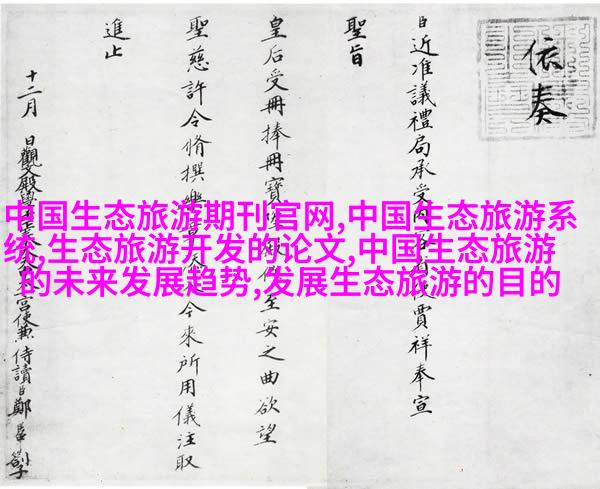 依奏
臣近准議禮局承受使賈祥奉宣
聖旨
皇后受冊捧冊寶至安之曲欲望
聖慈許令脩撰樂今來所用儀注取
進止
十二月 日觀文殿學士宮使兼侍讀臣鄭
中国生态旅游期刊官网,中国生态旅游系
统,生态旅游开发的论文,中国生态旅游
的未来发展趋势,发展生态旅游的目的